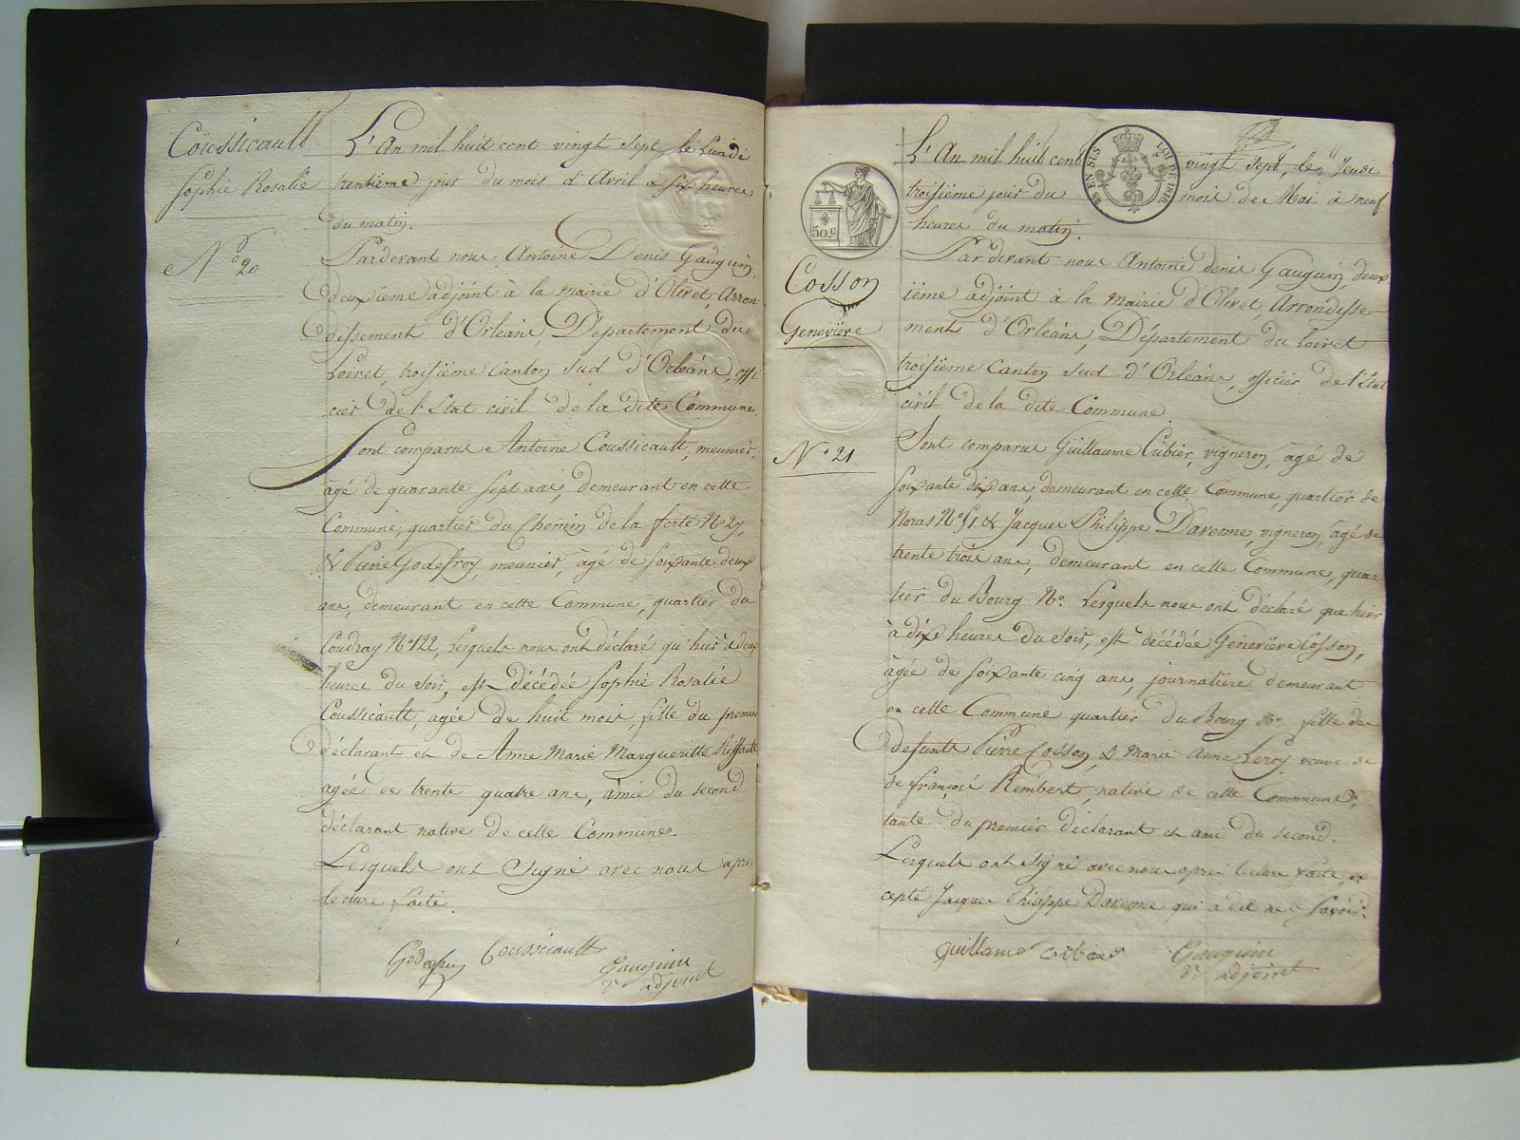 Coussicault
Sophie Rosalie
N° 20
L'An mil huit cent vingt sept, le Lundi
trentième jour du mois d'Avril à six heures
du matin.
Pardevant nous Antoine Denis Gauguin,
deuxième adjoint à la mairie d'Olivet, Arron
dissement d'Orléans, Département du
Loiret, troisième Canton Sud d'Orléans, offi
cier de l'Etat civil de la dite Commune.
Sont comparus Antoine Coussicault, meunier,
âgé de quarante sept ans, demeurant en cette
Commune, quartier du Chemin de la ferté N° 27,
& Pierre Godefroy, meunier, âgé de soixante deux
ans, demeurant en cette Commune, quartier du
Coudray N° 122, Lesquels nous ont déclaré qu'hier à deux
heures du soir, est décédée Sophie Rosalie
Coussicault, agée de huit mois, fille du premier
déclarant et de Anne Marie Margueritte
agée de trente quatre ans, amie du second
déclarant native de cette Commune.
Lesquels ont Signé avec nous après
lecture faite.
Godefroy Coussicault Gauguin
adjoint
L'An mil huit cent vingt sept, le Jeudi
troisième jour du mois de Mai à neuf
heures du matin.
50 c
LOI DE 1816
EN SUS
Cosson
Geneviève
N° 21
Pardevant nous Antoine denis Gauguin, deux
ième adjoint à la Mairie d'Olivet, Arrondisse-
ment d'Orléans, Département du Loiret
troisième Canton Sud d'Orléans, officier de l'Etat
civil de la dite Commune
Sont comparus Guillaume Cribier, vigneron, âgé de
soixante dix ans, demeurant en cette Commune, quartier de
Noras N° & Jacques Philippe Daveome, vigneron, âgé de
trente trois ans, demeurant en cette Commune, quar
tier du Bourg N° Lesquels nous ont déclaré que hier
à dix heures du soir, est décédée Geneviève Cosson,
âgée de soixante cinq ans, journalière demeurant
en cette Commune quartier du Bourg N° fille de
defunts Pierre Cosson, & Marie Anne Leroy veuve de
de françois Rembert, native de cette Commune,
tante du premier déclarant et ami du second.
Lesquels ont signé avec nous après lecture faite, ex
cepté Jacques Philippe Daveome qui a dit ne savoir.
Guillaume cribier Gauguin
adjoint